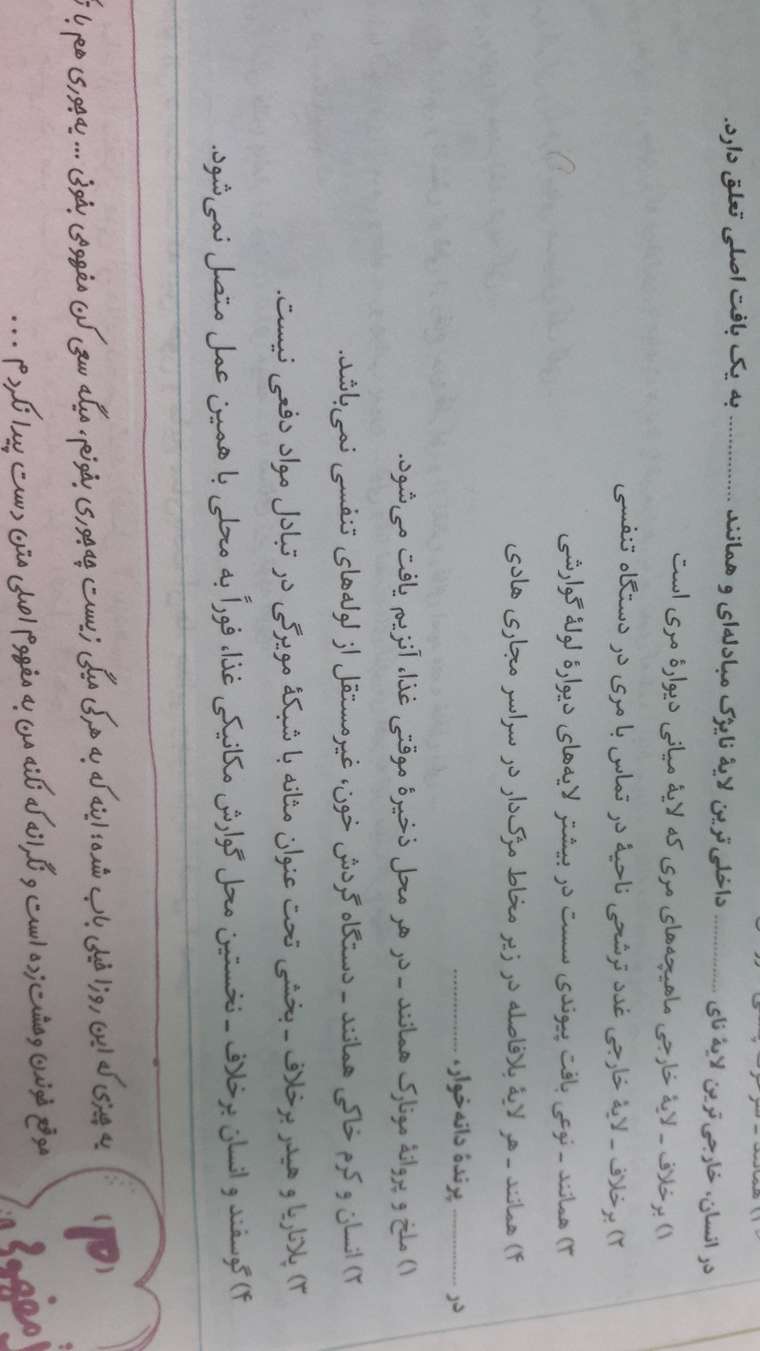 ۱) همانند ـ
در انسان، خارجی‌ترین لایهٔ نای .............. داخلی‌ترین لایهٔ نایژک مبادله‌ای و همانند .............. به یک بافت اصلی تعلق دارد.
۱) برخلاف ـ لایهٔ خارجی ماهیچه‌های مری که لایهٔ میانی دیوارهٔ مری است
۲) برخلاف ـ لایهٔ خارجی غدد ترشحی ناحیهٔ در تماس با مری در دستگاه تنفسی
۳) همانند ـ نوعی بافت پیوندی سست در بیشتر لایه‌های دیوارهٔ لولهٔ گوارشی
۴) همانند ـ هر لایهٔ بلافاصله در زیر مخاط مژک‌دار در سراسر مجاری هادی
در .............. پرندهٔ دانه‌خوار، ..............
۱) ملخ و پروانهٔ مونارک همانند ـ در هر محل ذخیرهٔ موقتی غذا، آنزیم یافت می‌شود.
۲) انسان و کرم خاکی همانند ـ دستگاه گردش خون، غیرمستقل از لوله‌های تنفسی نمی‌باشد.
۳) پلاناریا و هیدر برخلاف ـ بخشی تحت عنوان مثانه با شبکهٔ مویرگی در تبادل مواد دفعی نیست.
۴) گوسفند و انسان برخلاف ـ نخستین محل گوارش مکانیکی غذا، فوراً به محلی با همین عمل متصل نمی‌شود.
یه چیزی که این روزا خیلی باب شده؛ اینه که به هرکی میگی زیست چه‌جوری بخونم، میگه سعی کن مفهومی بخونی ... یه‌جوری هم با
موقع خوندن وحشت‌زده است و نگرانه که نکنه من به مفهوم اصلی متن دست پیدا نکردم ...